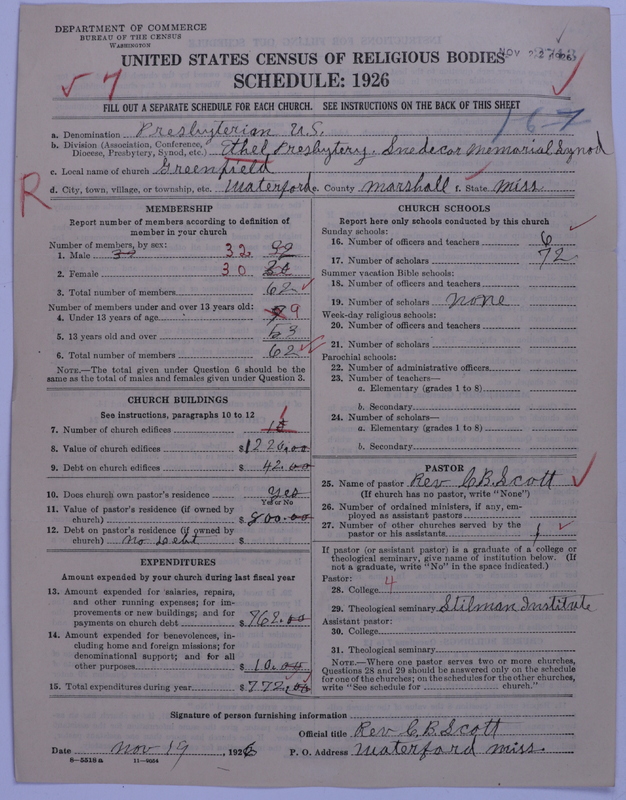 DEPARTMENT OF COMMERCE
BUREAU OF THE CENSUS
WASHINGTON
NOV 22 1926
UNITED STATES CENSUS OF RELIGIOUS BODIES
SCHEDULE: 1926
√ 7
FILL OUT A SEPARATE SCHEDULE FOR EACH CHURCH. SEE INSTRUCTIONS ON THE BACK OF THIS SHEET
167
a. Denomination Presbyterian U.S.
b. Division (Association, Conference, Diocese, Presbytery, Synod, etc.) Ethel Presbytery. Snedecor Memorial Synod
c. Local name of church Greenfield
R
d. City, town, village, or township, etc. Waterford e. County Marshall f. State Miss.
MEMBERSHIP
Report number of members according to definition of
member in your church
Number of members, by sex:
1. Male 32
2. Female 30
3. Total number of members 62
Number of members under and over 13 years old:
4. Under 13 years of age 9
5. 13 years old and over 53
6. Total number of members 62
NOTE.—The total given under Question 6 should be
same as the total of males and females given under Question 3.
CHURCH BUILDINGS
See instructions, paragraphs 10 to 12
7. Number of church edifices 1
8. Value of church edifices $1220.00
9. Debt on church edifices $ 42.00
10. Does church own pastor's residence Yes
Yes or No
11. Value of pastor's residence (if owned by
church) $ 800.00
12. Debt on pastor's residence (if owned by
church) no Debt $
EXPENDITURES
Amount expended by your church during last fiscal year
13. Amount expended for salaries, repairs,
and other running expenses; for im-
provements or new buildings; and for
payments on church debt $ 762.00
14. Amount expended for benevolences, in-
cluding home and foreign missions; for
denominational support; and for all
other purposes $ 10.00
15. Total expenditures during year $ 772.00
CHURCH SCHOOLS
Report here only schools conducted by this church
Sunday schools:
16. Number of officers and teachers 6
17. Number of scholars 72
Summer vacation Bible schools:
18. Number of officers and teachers
19. Number of scholars none
Week-day religious schools:
20. Number of officers and teachers
21. Number of scholars
Parochial schools:
22. Number of administrative officers
23. Number of teachers—
a. Elementary (grades 1 to 8)
b. Secondary
24. Number of scholars—
a. Elementary (grades 1 to 8)
b. Secondary
PASTOR
25. Name of pastor Rev C.B. Scott
(If church has no pastor, write "None")
26. Number of ordained ministers, if any, em-
ployed as assistant pastors
27. Number of other churches served by the
pastor or his assistants 1
If pastor (or assistant pastor) is a graduate of a college or
theological seminary, give name of institution below. (If
not a graduate, write "No" in the space indicated.)
Pastor:
28. College 4
29. Theological seminary Stilman Institute
Assistant pastor:
30. College
31. Theological seminary
NOTE.—Where one pastor serves two or more churches,
Questions 28 and 29 should be answered only on the schedule
for one of the churches; on the schedules for the other churches,
write "See schedule for church."
Signature of person furnishing information
Official title Rev C.B. Scott
Date Nov 19, 1926 P. O. Address Waterford Miss.
8—5518 a 11—9664